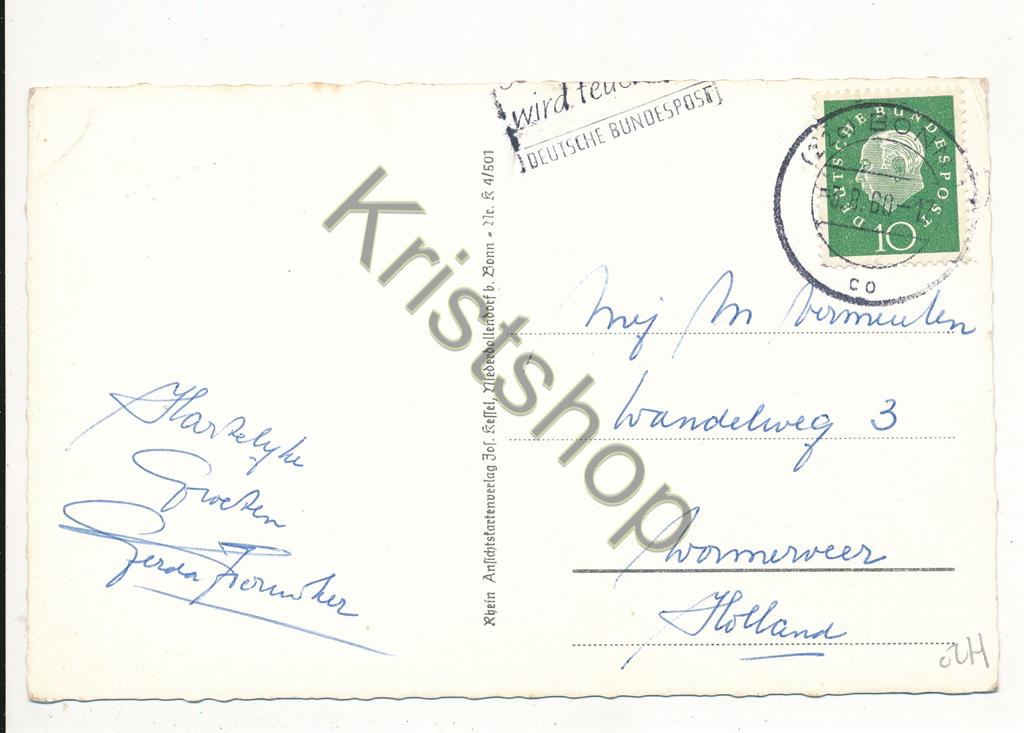 wird
DEUTSCHE BUNDESPOST
DEUTSCHE BUNDESPOST
10
BONN
60
co
Rhein Ansichtskartenverlag Jos. Kessel, Niederdollendorf b. Bonn - Nr. K 4/501
Kristshop
Hartelijke
Groeten
Gerda
Mej M Vermeulen
Wandelweg 3
Wormerveer
Holland